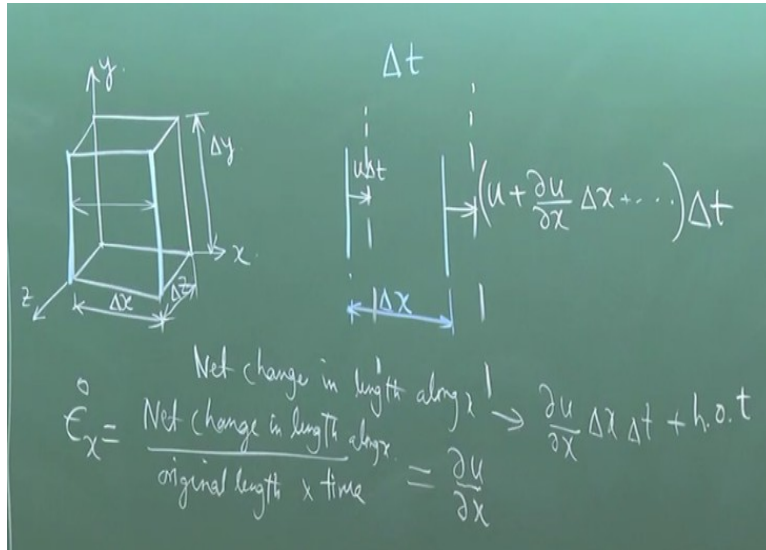 y
Δt
Δy
uΔt
(u + ∂u/∂x Δx + ...) Δt
x
z
Δx
Δz
Δx
Net change in length along x → ∂u/∂x Δx Δt + h.o.t
ε̇x = Net change in length along x / original length x time = ∂u/∂x